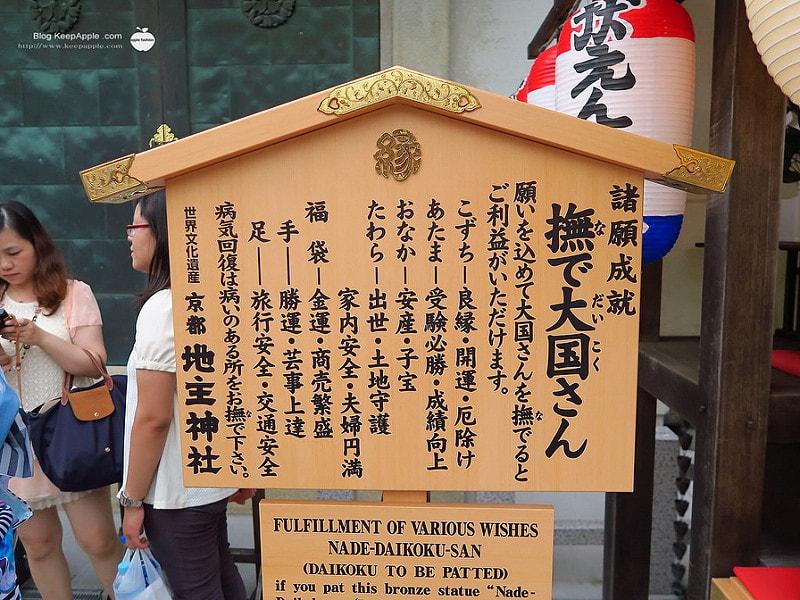 Blog KeepApple .com
http://www.keepapple.com
apple fashion
縁
諸願成就
撫で大国さん
な だいこく
願いを込めて大国さんを撫でると
な
ご利益がいただけます。
こずち―良縁・開運・厄除け
あたま―受験必勝・成績向上
おなか―安産・子宝
たわら―出世・土地守護
家内安全・夫婦円満
福袋―金運・商売繁盛
手―勝運・芸事上達
足―旅行安全・交通安全
病気回復は病いのある所をお撫で下さい。
な
世界文化遺産 京都 地主神社
FULFILLMENT OF VARIOUS WISHES
NADE-DAIKOKU-SAN
(DAIKOKU TO BE PATTED)
if you pat this bronze statue "Nade-
えん